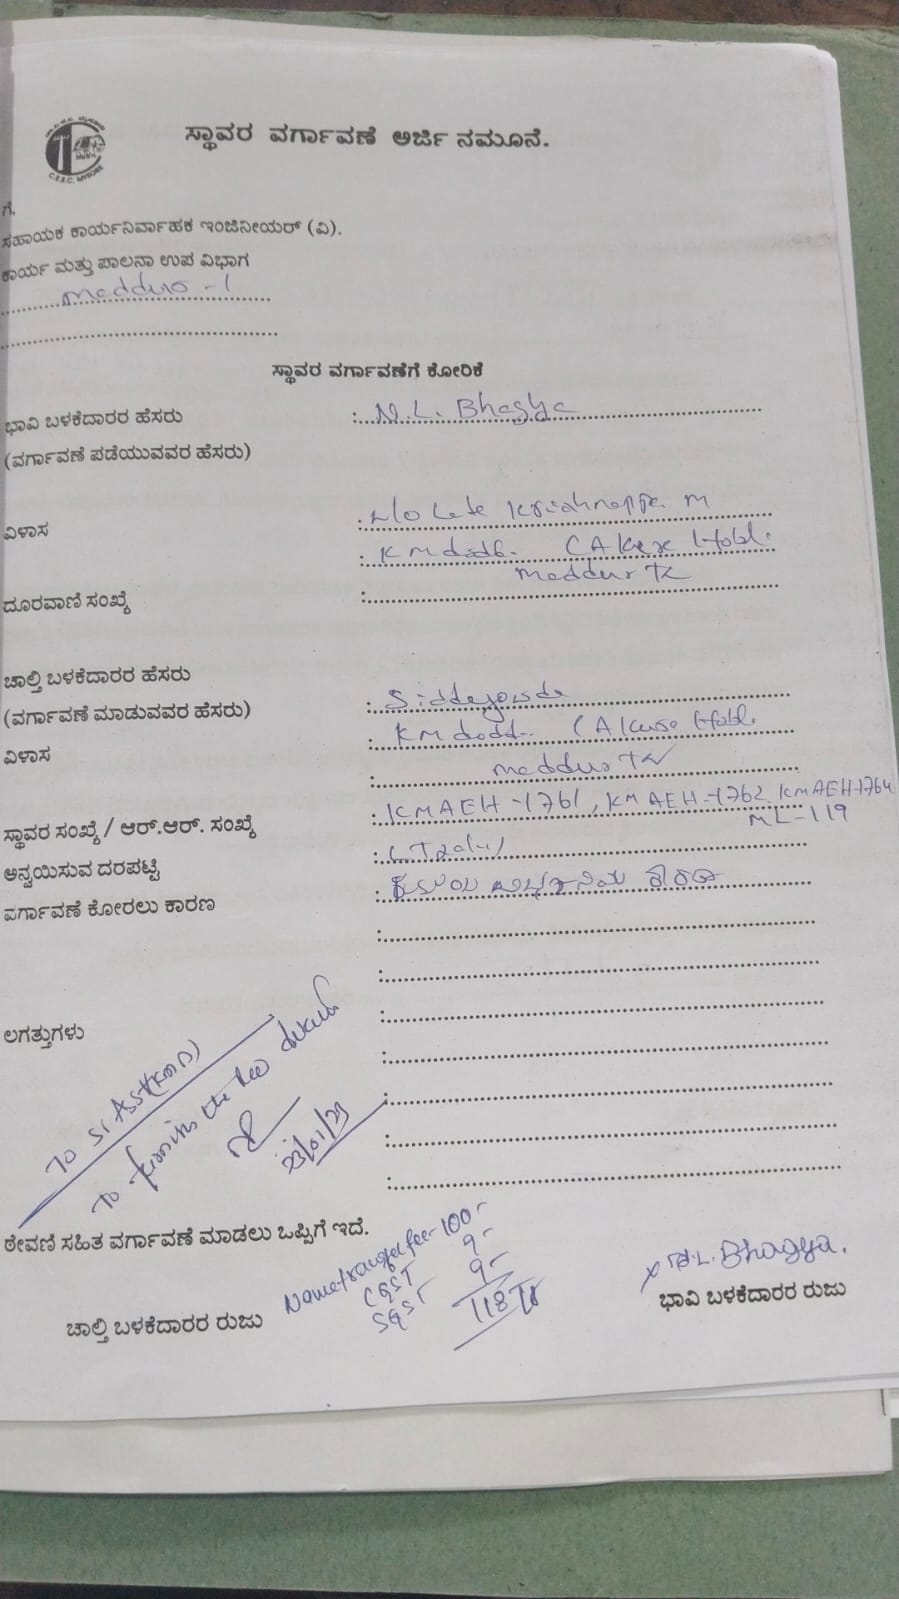 C.E.S.C. MYSORE
ಸ್ಥಾವರ ವರ್ಗಾವಣೆ ಅರ್ಜಿ ನಮೂನೆ.
ಗೆ,
ಸಹಾಯಕ ಕಾರ್ಯನಿರ್ವಾಹಕ ಇಂಜಿನೀಯರ್ (ವಿ).
ಕಾರ್ಯ ಮತ್ತು ಪಾಲನಾ ಉಪ ವಿಭಾಗ
ಸ್ಥಾವರ ವರ್ಗಾವಣೆಗೆ ಕೋರಿಕೆ
ಭಾವಿ ಬಳಕೆದಾರರ ಹೆಸರು : N.L. Bhagya
(ವರ್ಗಾವಣೆ ಪಡೆಯುವವರ ಹೆಸರು)
ವಿಳಾಸ : Late Krishnappa M
: Hobl.
Maddur Tk
ದೂರವಾಣಿ ಸಂಖ್ಯೆ :
ಚಾಲ್ತಿ ಬಳಕೆದಾರರ ಹೆಸರು
(ವರ್ಗಾವಣೆ ಮಾಡುವವರ ಹೆಸರು) : Siddegowda
ವಿಳಾಸ : Hobl.
: Maddur Tk
ಸ್ಥಾವರ ಸಂಖ್ಯೆ / ಆರ್.ಆರ್. ಸಂಖ್ಯೆ : KMAEH-1761, KMAEH-1762, KMAEH-1764
ML-119
ಅನ್ವಯಿಸುವ ದರಪಟ್ಟಿ :
ವರ್ಗಾವಣೆ ಕೋರಲು ಕಾರಣ :
ಲಗತ್ತುಗಳು
To
To the
23/01/23
ಠೇವಣಿ ಸಹಿತ ವರ್ಗಾವಣೆ ಮಾಡಲು ಒಪ್ಪಿಗೆ ಇದೆ.
Name transfer fee - 100-
CGST 9-
SGST 9-
118
N.L. Bhagya.
ಚಾಲ್ತಿ ಬಳಕೆದಾರರ ರುಜು
ಭಾವಿ ಬಳಕೆದಾರರ ರುಜು